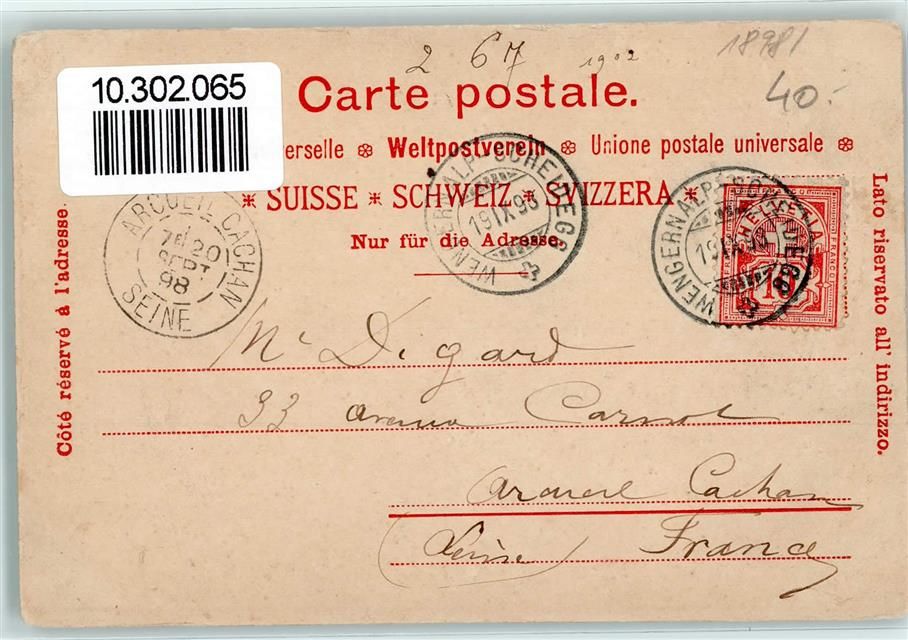 2 67 1902
18981
40.-
10.302.065
Carte postale.
erselle Weltpostverein Unione postale universale
SUISSE * SCHWEIZ * SVIZZERA *
Nur für die Adresse.
Côté réservé à l'adresse.
Lato riservato all' indirizzo.
ARCUEIL-CACHAN
7E 20
SEPT
98
SEINE
WENGERNALP-SCHEIDEGG
19 IX 98
WENGERNALP-SCHEIDEGG
19 IX 98
HELVETIA
FRANCO
10
Mr Digard
33 avenue Carnot
Arcueil Cachan
(Seine) France